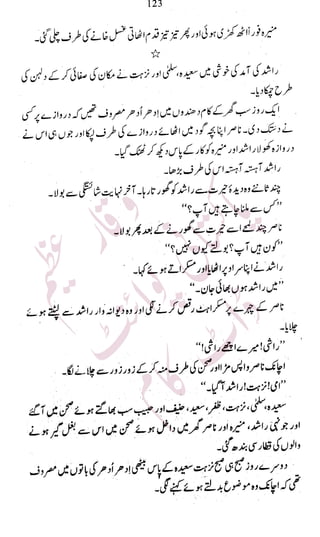 123
منیرہ فوراً اٹھ کھڑی ہوئی اور پھر تیز تیز قدم اٹھاتی غسل خانے کی طرف چلی گئی۔
☆
راشد کی آمد کی خوشی میں سعیدہ، سلمٰی اور نزہت نے مکان کی صفائی کر کے دلہن کی
طرح چمکا دیا۔
ایک روز سب گھر کے کام دھندوں میں اِدھر اُدھر مصروف تھیں کہ دروازے پر کسی
نے دستک دی۔ ناصر اپنا بچہ گود میں اٹھائے دروازے کی طرف لپکا اور جوں ہی اس نے
دروازہ کھولا راشد اور منیرہ کو کار کے پاس دیکھ کر ٹھٹک گیا۔
راشد آہستہ آہستہ اس کی طرف بڑھا۔
چند ثانئے وہ دیدۂ حیرت سے راشد کو گھورتا رہا۔ آخر نہایت شائستگی سے بولا۔
”کس سے ملنا چاہتے ہیں آپ؟“
ناصر چند لمحے اسے حیرت سے گھورنے کے بعد پھر بولا۔
”کون ہیں آپ؟ بولتے کیوں نہیں؟“
راشد نے اپنا سر اوپر اٹھایا اور مسکراتے ہوئے کہا۔
”میں راشد ہوں بھائی جان۔“
ناصر کے چہرے پر مسکراہٹ رقص کرنے لگی اور وہ دیوانہ وار راشد سے لپٹتے ہوئے
چلایا۔
”راشی! میرے اچھے راشی!“
اچانک ناصر واپس مڑا اور صحن کی طرف منہ کر کے زور زور سے چلانے لگا۔
”امی! نزہت! راشد آ گیا۔“
سعیدہ، سلمٰی، نزہت، ظفر، سعید، حنیف اور حبیب سب بھاگتے ہوئے صحن میں آ گئے
اور جونہی راشد، منیرہ اور ناصر گھر میں داخل ہوئے صحن میں اس سے بغل گیر ہونے
والوں کی قطار سی بندھ گئی۔
دوسرے روز صبح ہی صبح نزہت سعیدہ کے پاس بیٹھی اِدھر اُدھر کی باتوں میں مصروف
تھی کہ اچانک وہ موضوع بدلتے ہوئے کہنے لگی۔
وقار عظیم
پاکستانی پوائنٹ
ڈاٹ کام